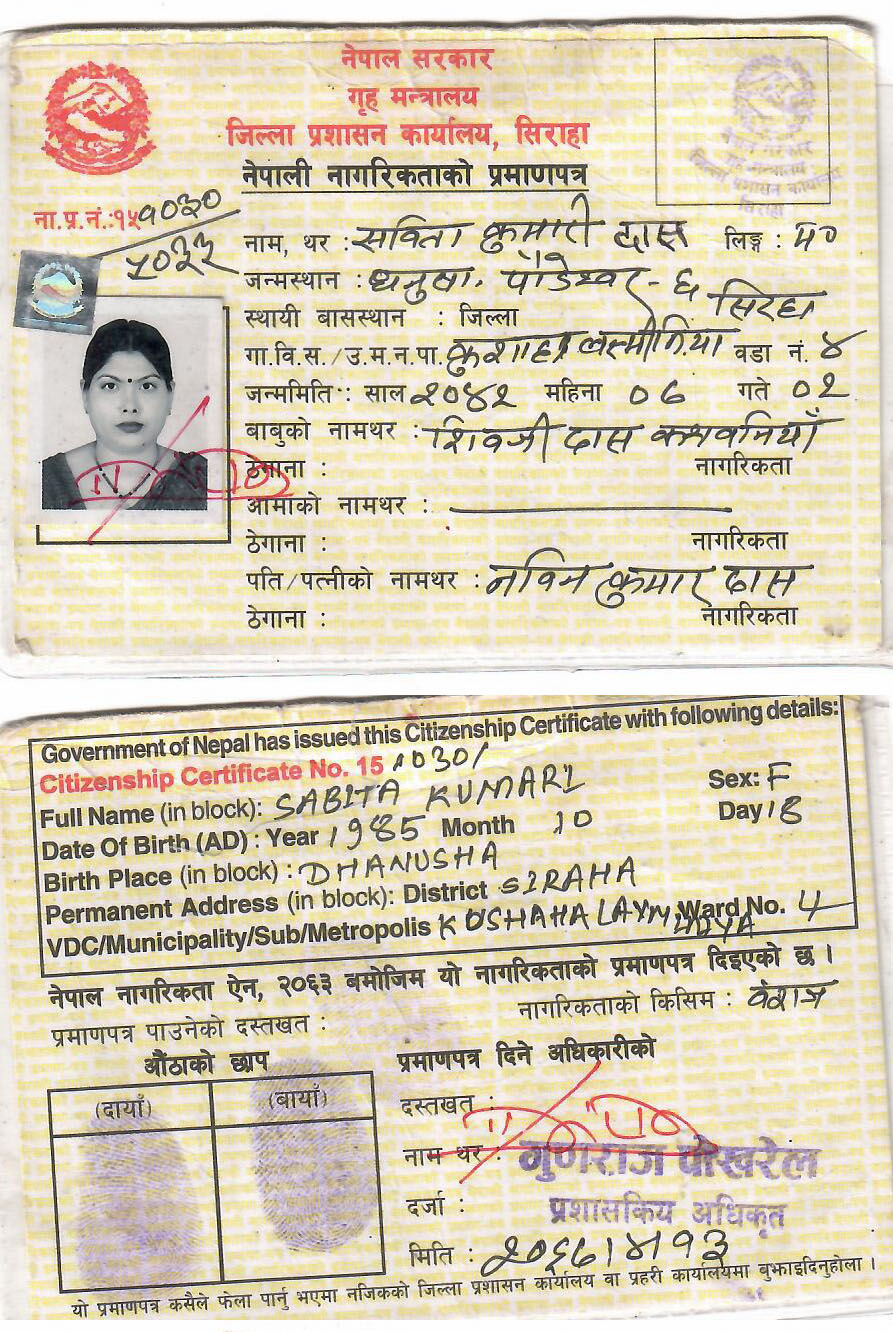 नेपाल सरकार
गृह मन्त्रालय
जिल्ला प्रशासन कार्यालय, सिराहा
नेपाली नागरिकताको प्रमाणपत्र
ना.प्र.नं.:१५१०३०
नाम, थर : सविता कुमारी दास लिङ्ग : म०
जन्मस्थान : धनुषा. पौडेश्वर - ६
स्थायी बासस्थान : जिल्ला सिरहा
गा.वि.स./उ.म.न.पा. कुशाहा लक्ष्मीनिया वडा नं. ४
जन्ममिति : साल २०४२ महिना ०६ गते ०२
बाबुको नामथर : शिवजी दास
ठेगाना : नागरिकता
आमाको नामथर :
ठेगाना : नागरिकता
पति/पत्नीको नामथर : नविन कुमार दास
ठेगाना : नागरिकता
Government of Nepal has issued this Citizenship Certificate with following details:
Citizenship Certificate No. 15 1030/
Full Name (in block): SABITA KUMARI Sex: F
Date Of Birth (AD) : Year 1985 Month 10 Day 18
Birth Place (in block) : DHANUSHA
Permanent Address (in block): District SIRAHA
VDC/Municipality/Sub/Metropolis Ward No. 4
नेपाल नागरिकता ऐन, २०६३ बमोजिम यो नागरिकताको प्रमाणपत्र दिइएको छ ।
प्रमाणपत्र पाउनेको दस्तखत : नागरिकताको किसिम : वंशज
औंठाको छाप
(दायाँ) (बायाँ)
प्रमाणपत्र दिने अधिकारीको
दस्तखत :
नाम थर : गुणराज पोखरेल
दर्जा : प्रशासकिय अधिकृत
मिति : २०६७।४।१३
यो प्रमाणपत्र कसैले फेला पार्नु भएमा नजिकको जिल्ला प्रशासन कार्यालय वा प्रहरी कार्यालयमा बुझाइदिनुहोला ।